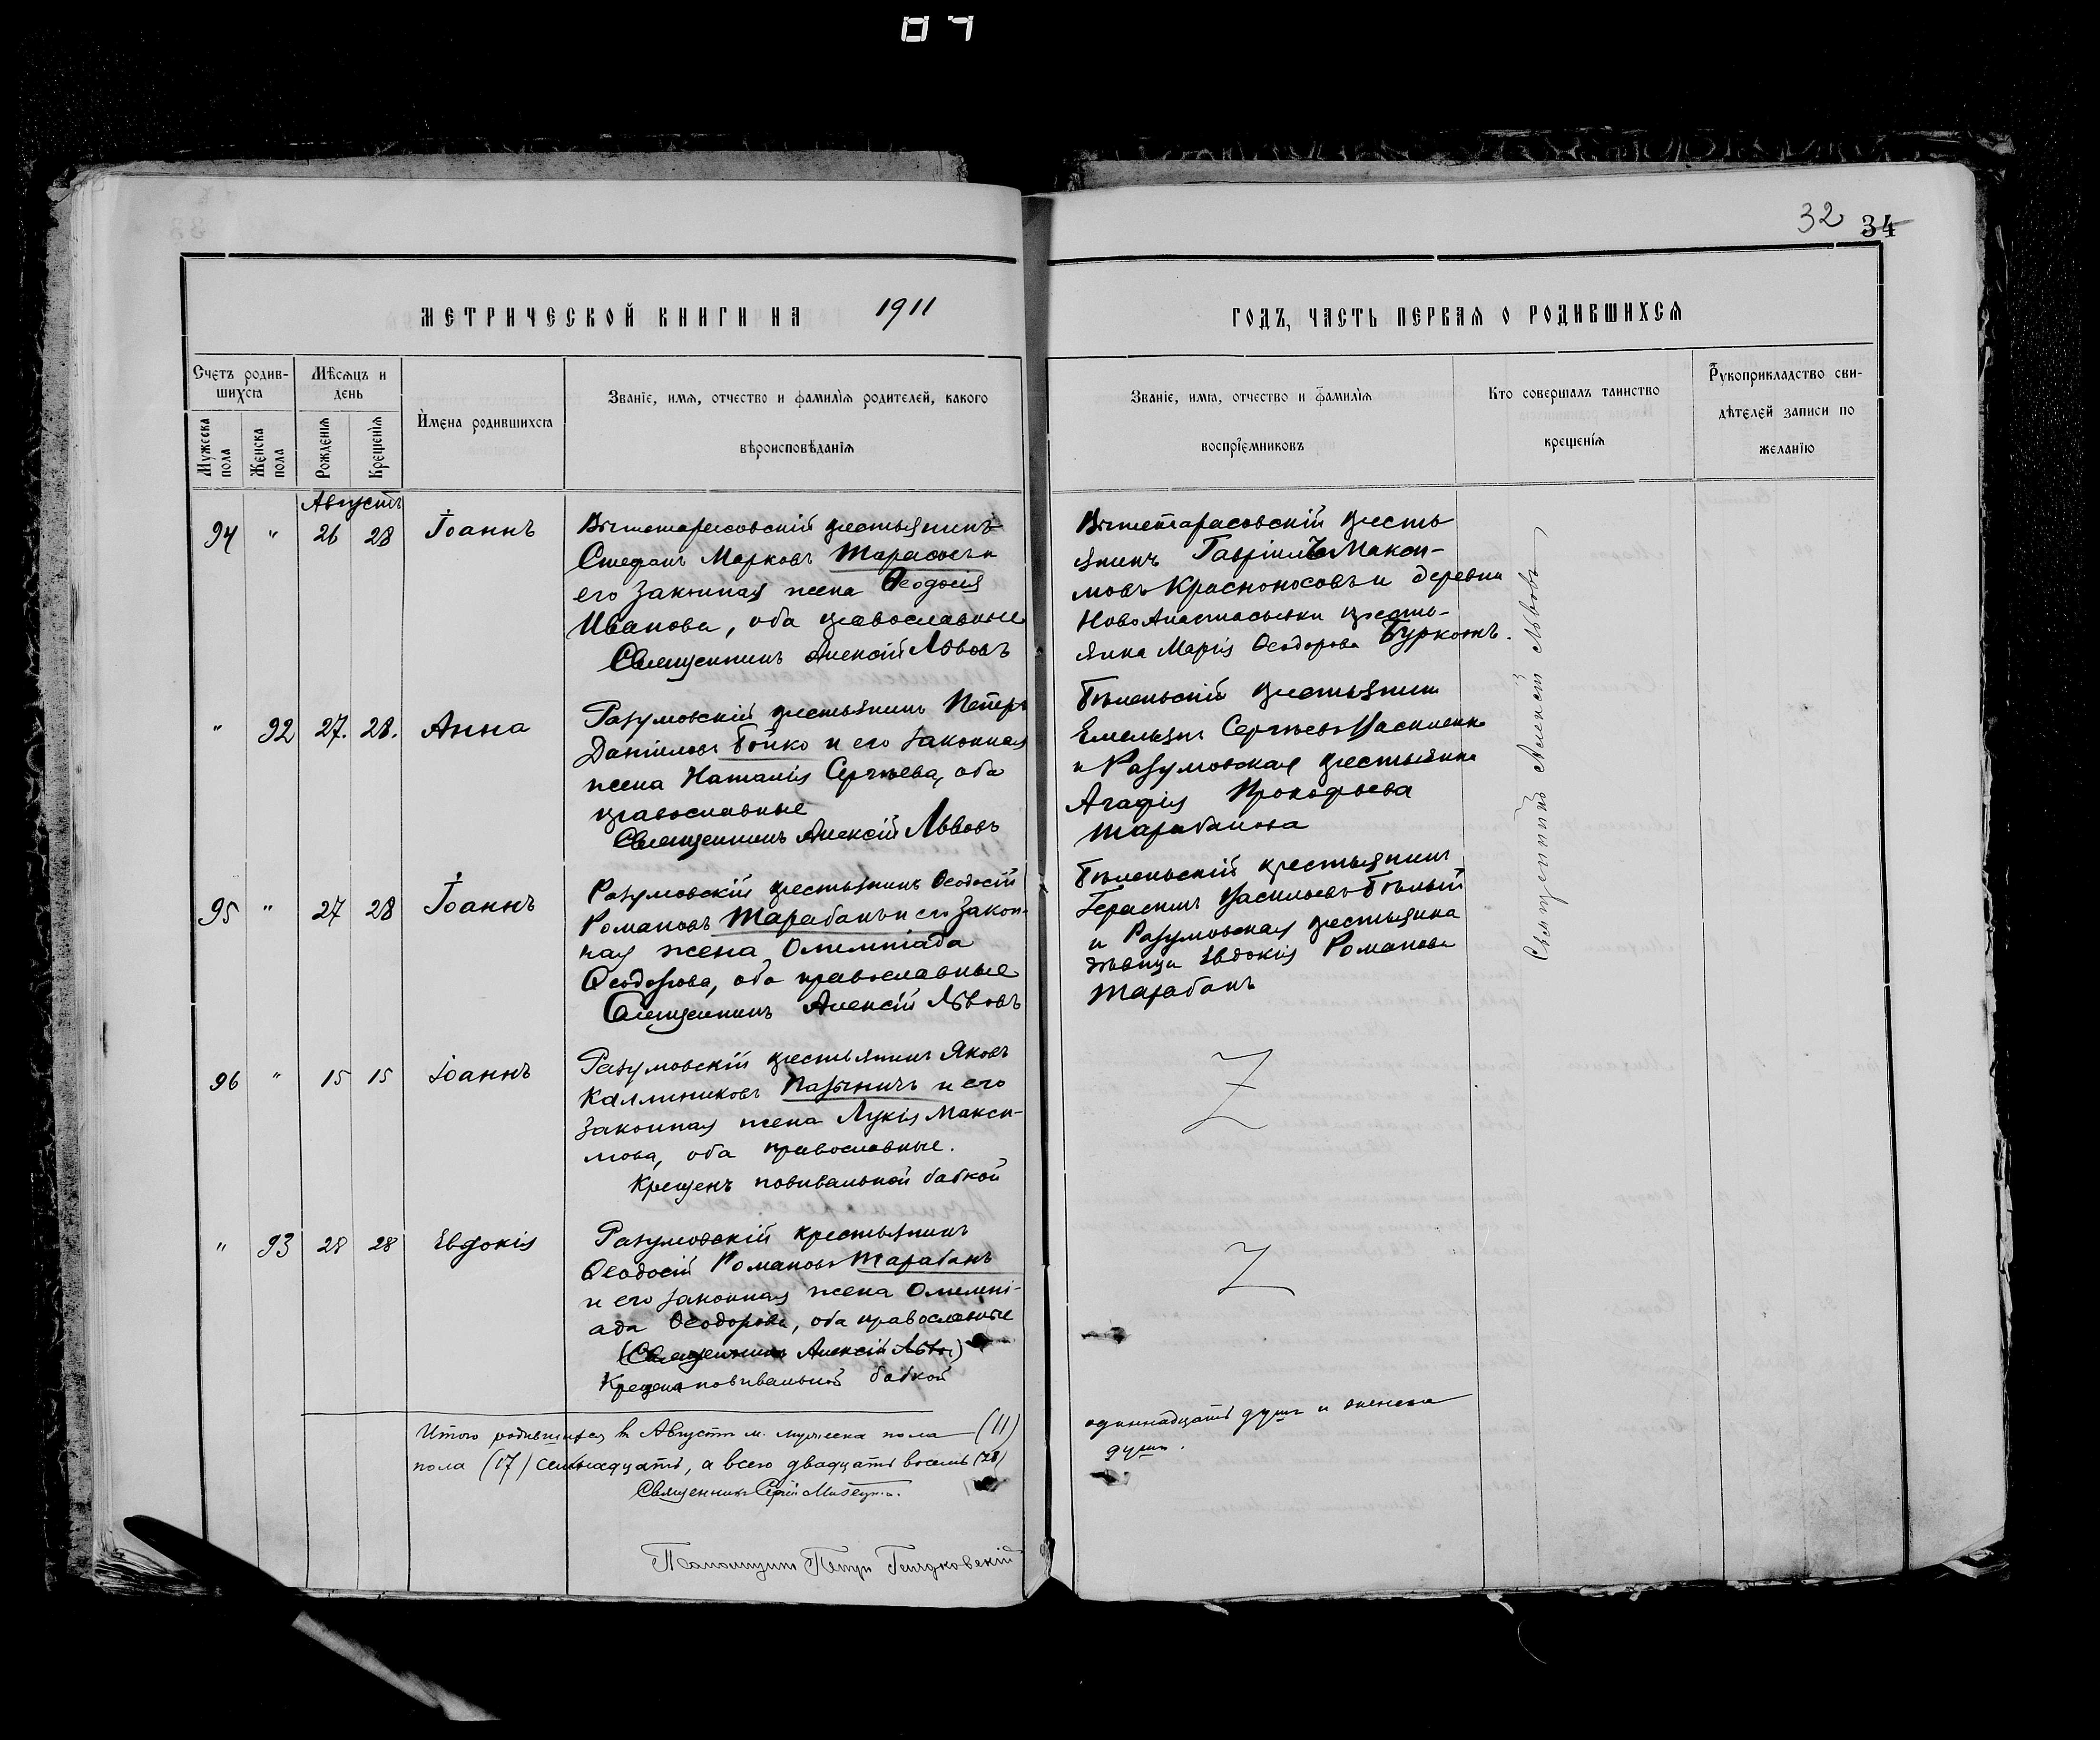 32 34
МЕТРИЧЕСКОЙ КНИГИ НА 1911
ГОДЪ, ЧАСТЬ ПЕРВАЯ О РОДИВШИХСЯ
Счетъ родив-
шихся
Мѣсяцъ и
день
Имена родившихся
Званіе, имя, отчество и фамилія родителей, какого
вѣроисповѣданія
Мужеска пола
Женска пола
Рожденія
Крещенія
Званіе, имя, отчество и фамилія
воспріемниковъ
Кто совершалъ таинство
крещенія
Рукоприкладство сви-
дѣтелей записи по
желанію
Августъ
94 " 26 28 Іоаннъ
крестьянинъ
Стефанъ Марковъ Тарасовъ и
его законная жена Ѳеодосія
Иванова, оба православные
Священникъ Алексій Львовъ
кресть-
янинъ Гавріилъ Макси-
мовъ Красноносовъ и деревни
кресть-
янка Марія Ѳеодорова
" 92 27. 28. Анна
Разумовскій крестьянинъ Петръ
Даніиловъ Бойко и его законная
жена Наталія Сергѣева, оба
православные
Священникъ Алексій Львовъ
Бѣленьскій крестьянинъ
Емельянъ Сергѣевъ Василенко
и Разумовская крестьянка
Агафія Прокофьева
Тарабанова
95 " 27 28 Іоаннъ
Разумовскій крестьянинъ Ѳеодосій
Романовъ Тарабанъ и его закон-
ная жена Олимпіада
Ѳеодорова, оба православные
Священникъ Алексій Львовъ
Бѣленьскій крестьянинъ
Герасимъ Васильевъ Бѣлый
и Разумовская крестьянка
дѣвица Евдокія Романова
Тарабанъ
Священникъ Алексій Львовъ
96 " 15 15 Іоаннъ
Разумовскій крестьянинъ Яковъ
Каллиниковъ и его
законная жена Лукія Макси-
мова, оба православные.
Крещенъ повивальной бабкой
Z
" 93 28 28 Евдокія
Разумовскій крестьянинъ
Ѳеодосій Романовъ Тарабанъ
и его законная жена Олимпі-
ада Ѳеодорова, оба православные
(Священникъ Алексій Львовъ)
Крещена повивальной бабкой
Z
Итого родившихся въ Августѣ м. мужеска пола (11)
одиннадцать душъ и женска
пола (17) семнадцать, а всего двадцать восемь (28)
душъ.
Священникъ Сергій
Псаломщикъ Петръ